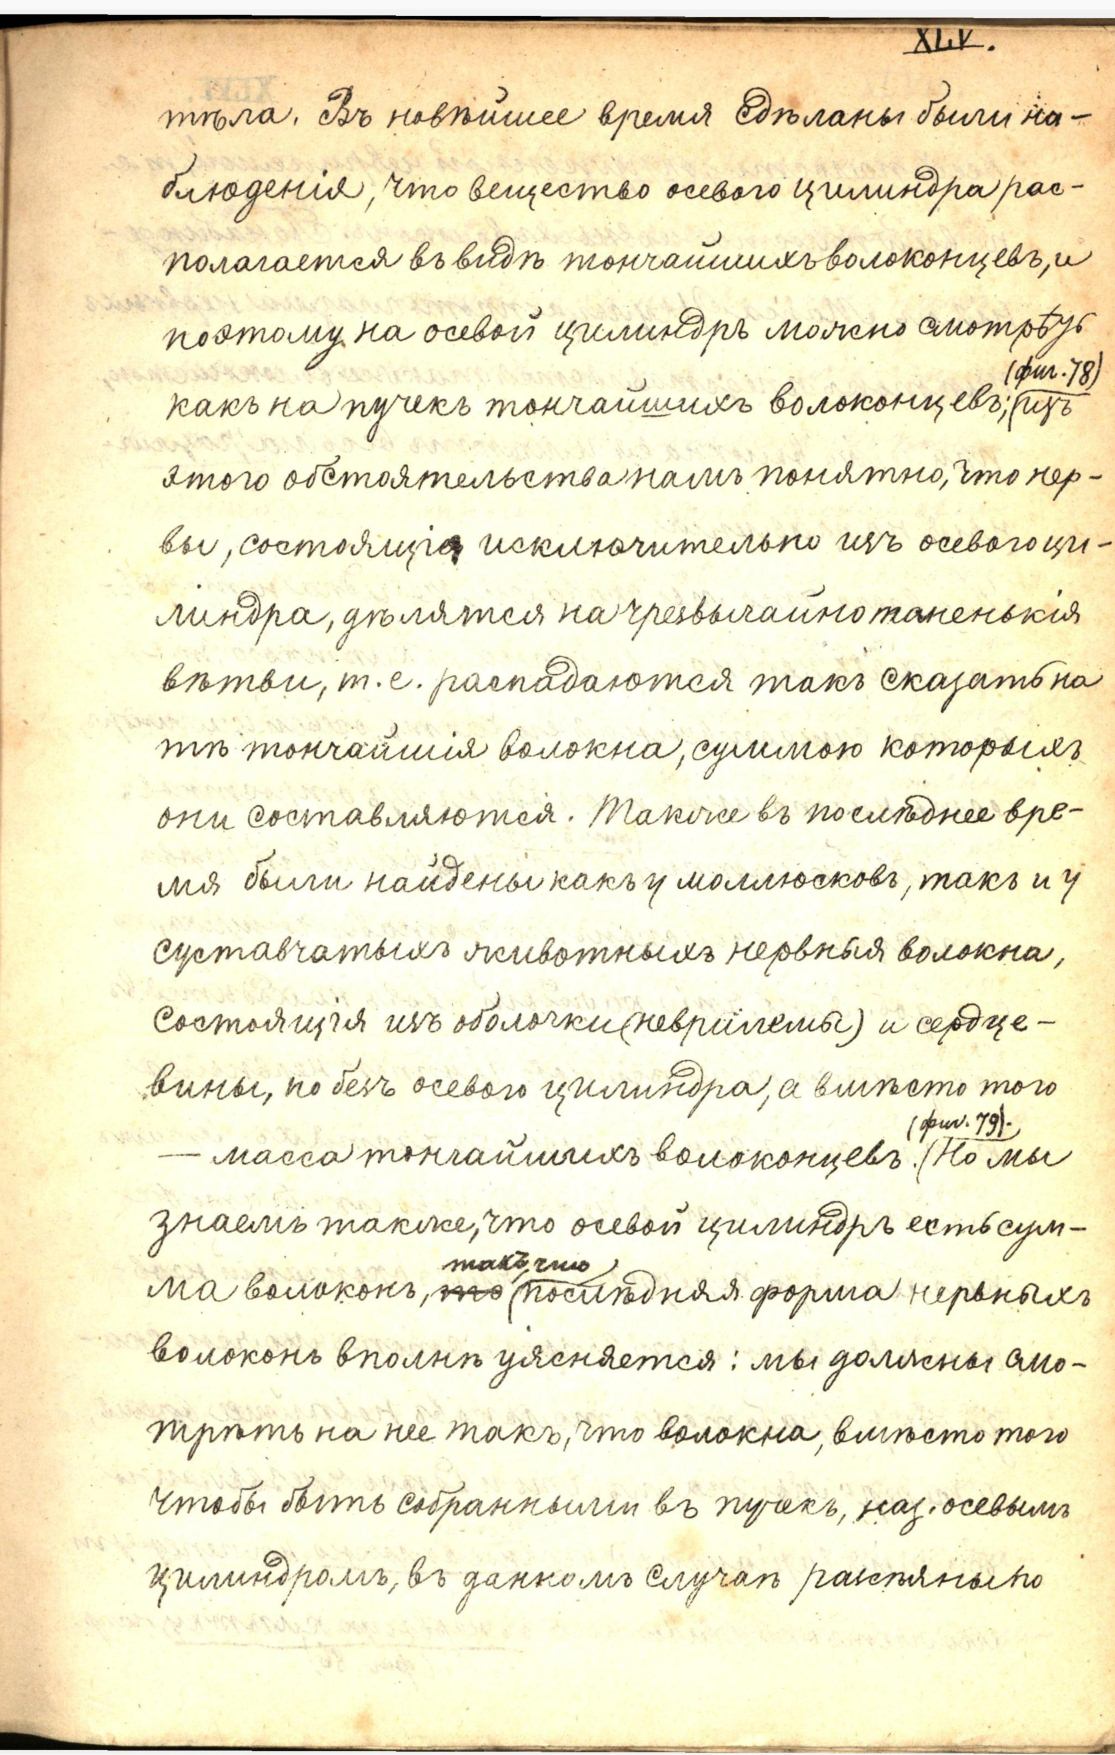 XLV.
тѣла. Въ новѣйшее время сдѣланы были на-
блюденія, что вещество осевого цилиндра рас-
полагается въ видѣ тончайшихъ волоконцевъ, и
поэтому на осевой цилиндръ можно смотрѣть
(фиг. 78)
какъ на пучекъ тончайшихъ волоконцевъ; изъ
этого обстоятельства намъ понятно, что нер-
вы, состоящія исключительно изъ осевого ци-
линдра, дѣлятся на чрезвычайно тоненькія
вѣтви, т. е. распадаются такъ сказать на
тѣ тончайшія волокна, суммою которыхъ
они составляются. Также въ послѣднее вре-
мя были найдены какъ у моллюсковъ, такъ и у
суставчатыхъ животныхъ нервныя волокна,
состоящія изъ оболочки (неврилемы) и сердце-
вины, но безъ осевого цилиндра, а вмѣсто того
(фиг. 79).
— масса тончайшихъ волоконцевъ. Но мы
знаемъ также, что осевой цилиндръ есть сум-
такъ, что
ма волоконъ, то послѣдняя форма нервныхъ
волоконъ вполнѣ уясняется: мы должны смо-
трѣть на нее такъ, что волокна, вмѣсто того
чтобы быть собранными въ пучекъ, наз. осевымъ
цилиндромъ, въ данномъ случаѣ разсѣяны по